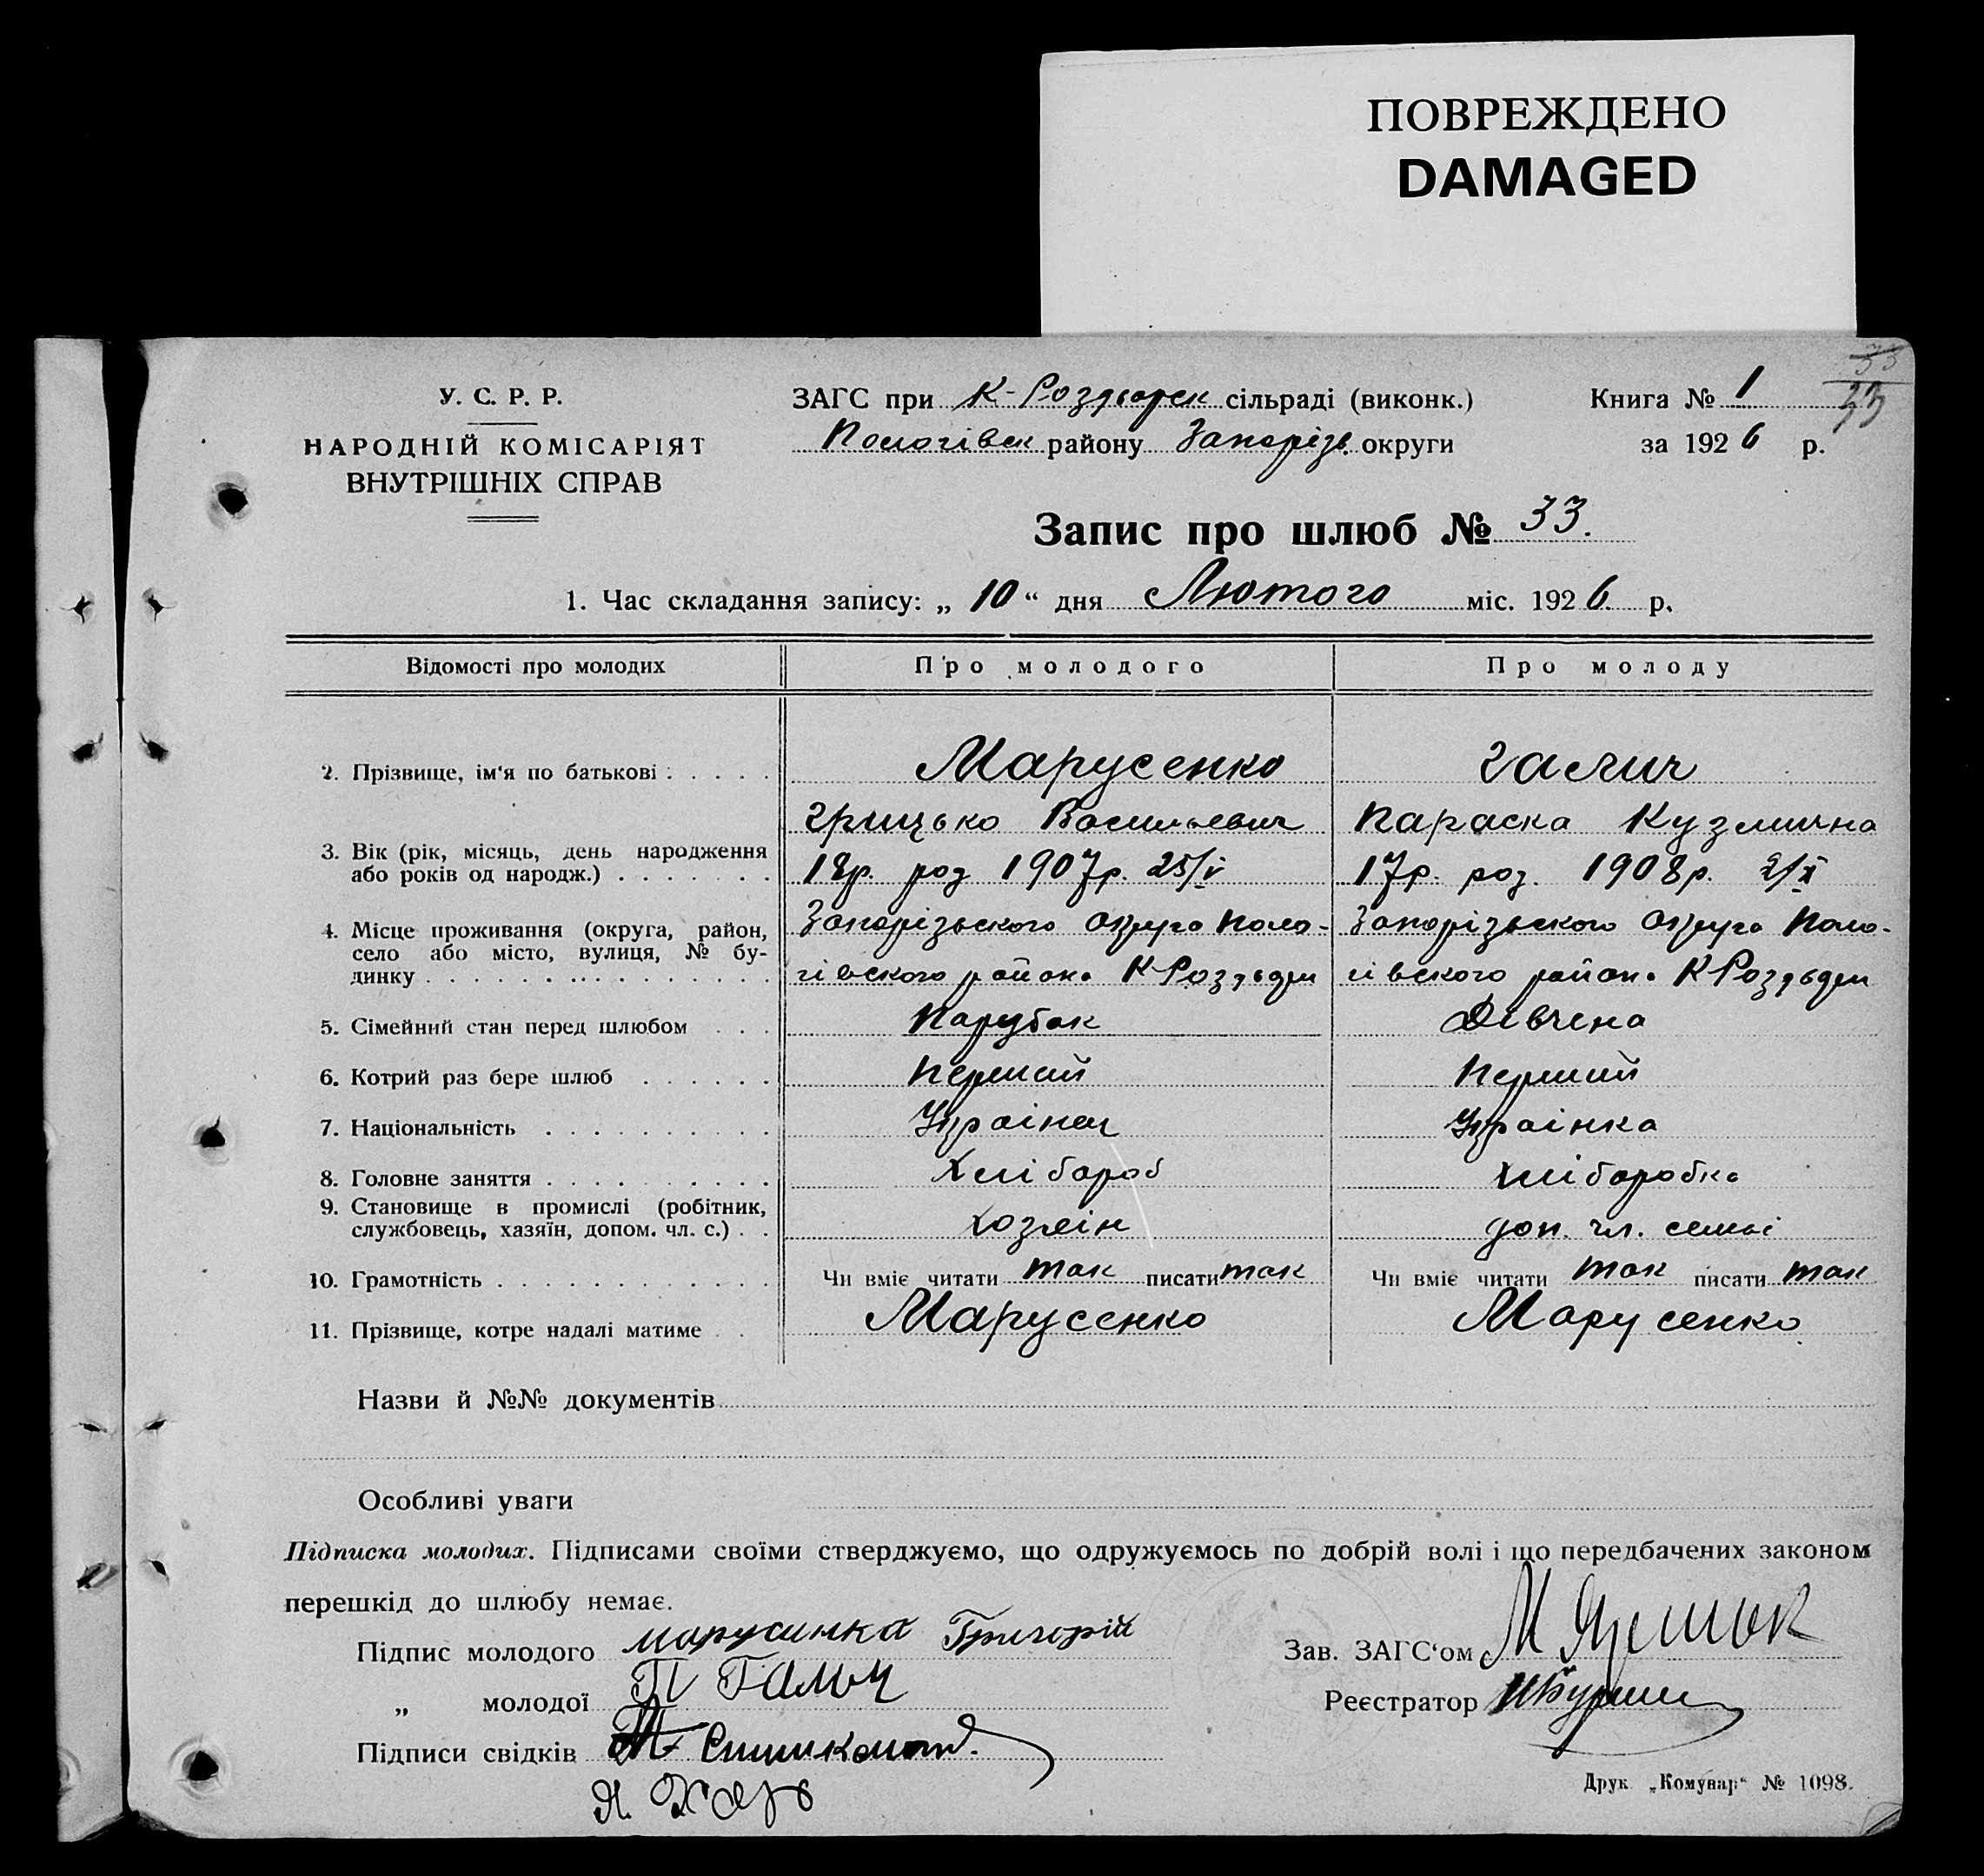 ПОВРЕЖДЕНО
DAMAGED
33
33
У. С. Р. Р.
НАРОДНІЙ КОМІСАРІЯТ
ВНУТРІШНІХ СПРАВ
ЗАГС при К-Роздорск сільраді (виконк.)
Пологівск району Запорізь. округи
Книга № 1
за 1926 р.
Запис про шлюб № 33.
1. Час складання запису: „ 10 “ дня Лютого міс. 1926 р.
Відомості про молодих Про молодого Про молоду
2. Прізвище, ім‘я по батькові : . . . . . Марусенко Галич
Грицько Васильевич Параска Кузмична
3. Вік (рік, місяць, день народження
або років од народж.) . . . . . . . 18р. роз 1907р. 25/V 17р. роз. 1908р. 2/X
4. Місце проживання (округа, район,
село або місто, вулиця, № бу-
динку . . . . . . . . . . . . . .
Запорізьского округа Поло- Запорізьского округа Поло-
гівского района К-Роздори гівского района К Роздори
5. Сімейний стан перед шлюбом . . . Парубок Дівчена
6. Котрий раз бере шлюб . . . . . . Перший Перший
7. Національність . . . . . . . . . . Украінец Украінка
8. Головне заняття . . . . . . . . . . Хлібороб Хліборобка
9. Становище в промислі (робітник,
службовець, хазяїн, допом. чл. с.) . . Хозяін доп. чл. семьі
10. Грамотність . . . . . . . . . . . . Чи вміє читати так писати так Чи вміє читати так писати так
11. Прізвище, котре надалі матиме . . Марусенко Марусенко
Назви й №№ документів
Особливі уваги
Підписка молодих. Підписами своїми стверджуємо, що одружуємось по добрій волі і що передбачених законом
перешкід до шлюбу немає.
Підпис молодого Марусинка Григорій
„ молодої П Галыч
Підписи свідків
Зав. ЗАГС‘ом М
Реєстратор
Друк. „Комунар“ № 1098.